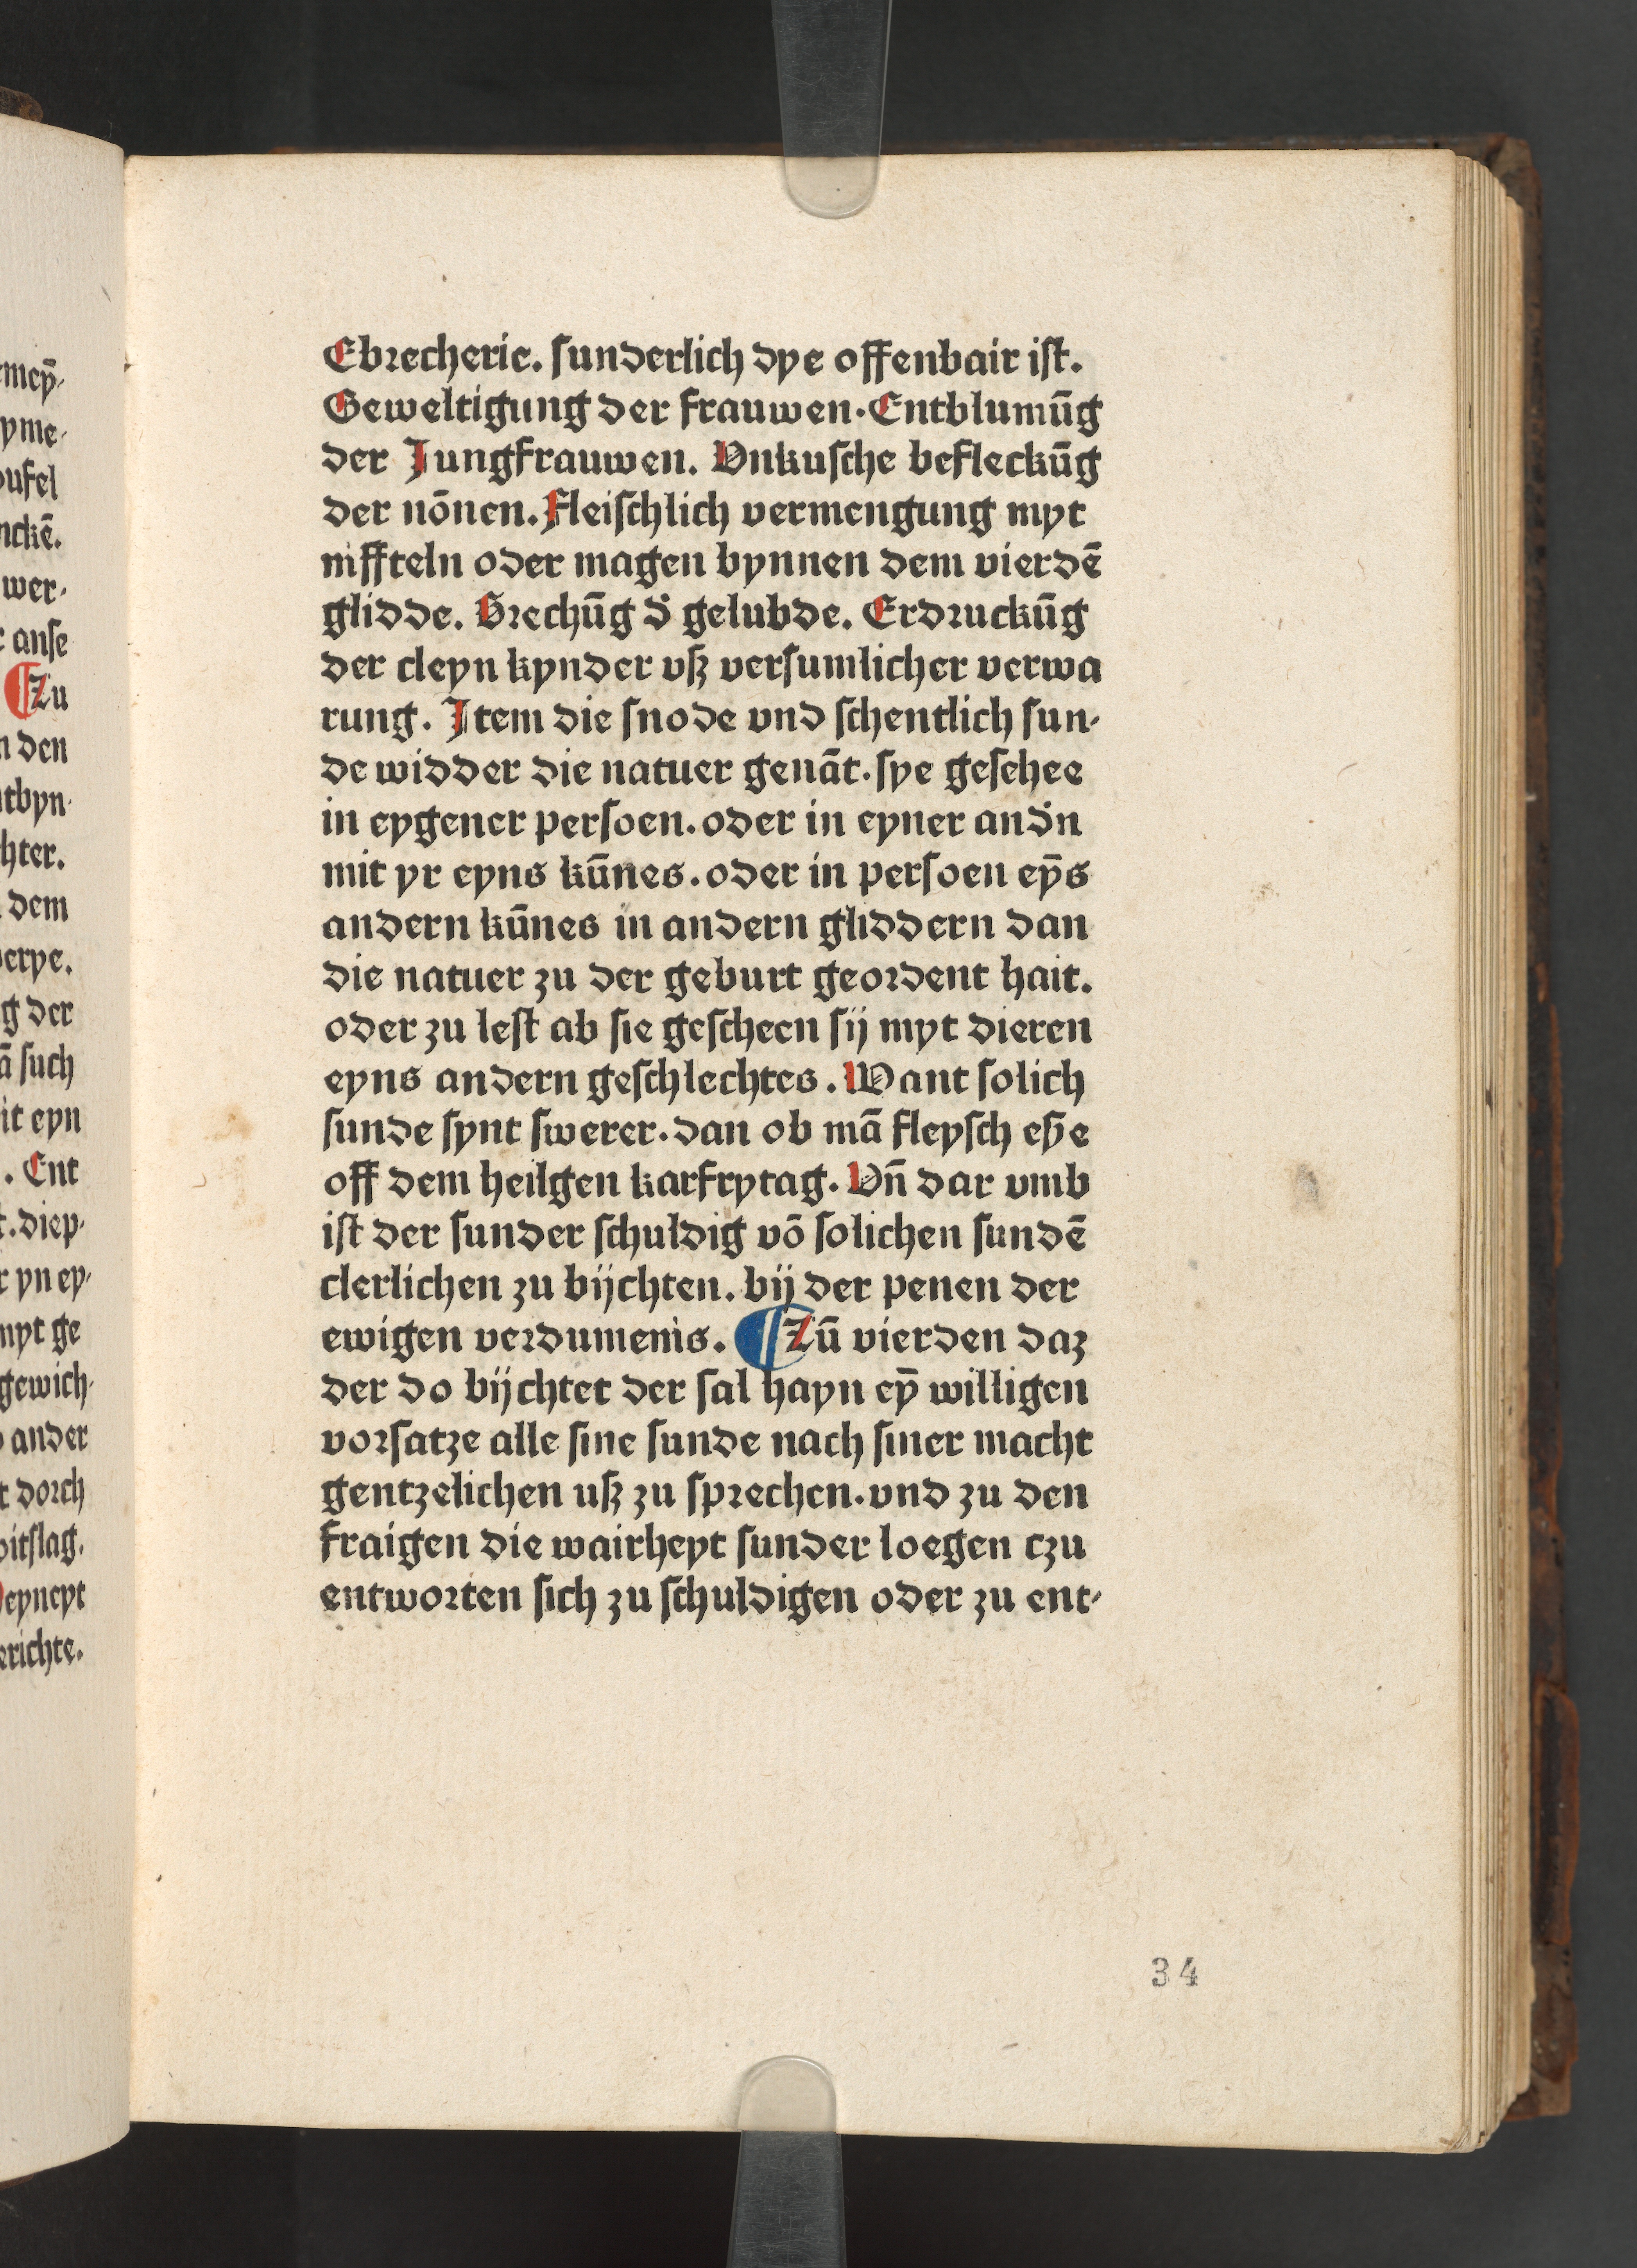 Ebrecherie. sunderlich dye offenbair ist.
Geweltigung der frauwen. Entblumūg
der Jungfrauwen. Vnkusche befleckūg
der nōnen. Fleischlich vermengung myt
niffteln oder magen bynnen dem vierdē
glidde. Brechūg d̄ gelubde. Erdruckūg
der cleyn kynder vß versumlicher verwa
rung. Item die snode vnd schentlich sun⸗
de widder die natuer genāt. sye geschee
in eygener persoen. oder in eyner and̄n
mit yr eyns kūnes. oder in persoen eȳs
andern kūnes in andern gliddern dan
die natuer zu der geburt geordent hait.
oder zu lest ab sie gescheen sij myt dieren
eyns andern geschlechtes. Want solich
sunde synt swerer. dan ob mā fleysch eße
off dem heilgen karfrytag. Vn̄ dar vmb
ist der sunder schuldig vō solichen sundē
clerlichen zu bijchten. bij der penen der
ewigen verdumenis. ¶ Zū vierden daz
der do bijchtet der sal hayn eȳ willigen
vorsatze alle sine sunde nach siner macht
gentzelichen uß zu sprechen. vnd zu den
fraigen die wairheyt sunder loegen tzu
entworten sich zu schuldigen oder zu ent⸗
34
ymē⸗
yme⸗
ufel
nckē.
wer⸗
anse
¶ Zu
den
tbyn⸗
hter.
dem
erye.
g der
such
it eyn
. Ent
diep⸗
yn ey⸗
myt ge
gewich⸗
ander
dorch
oitslag.
eyneyt
erichte.